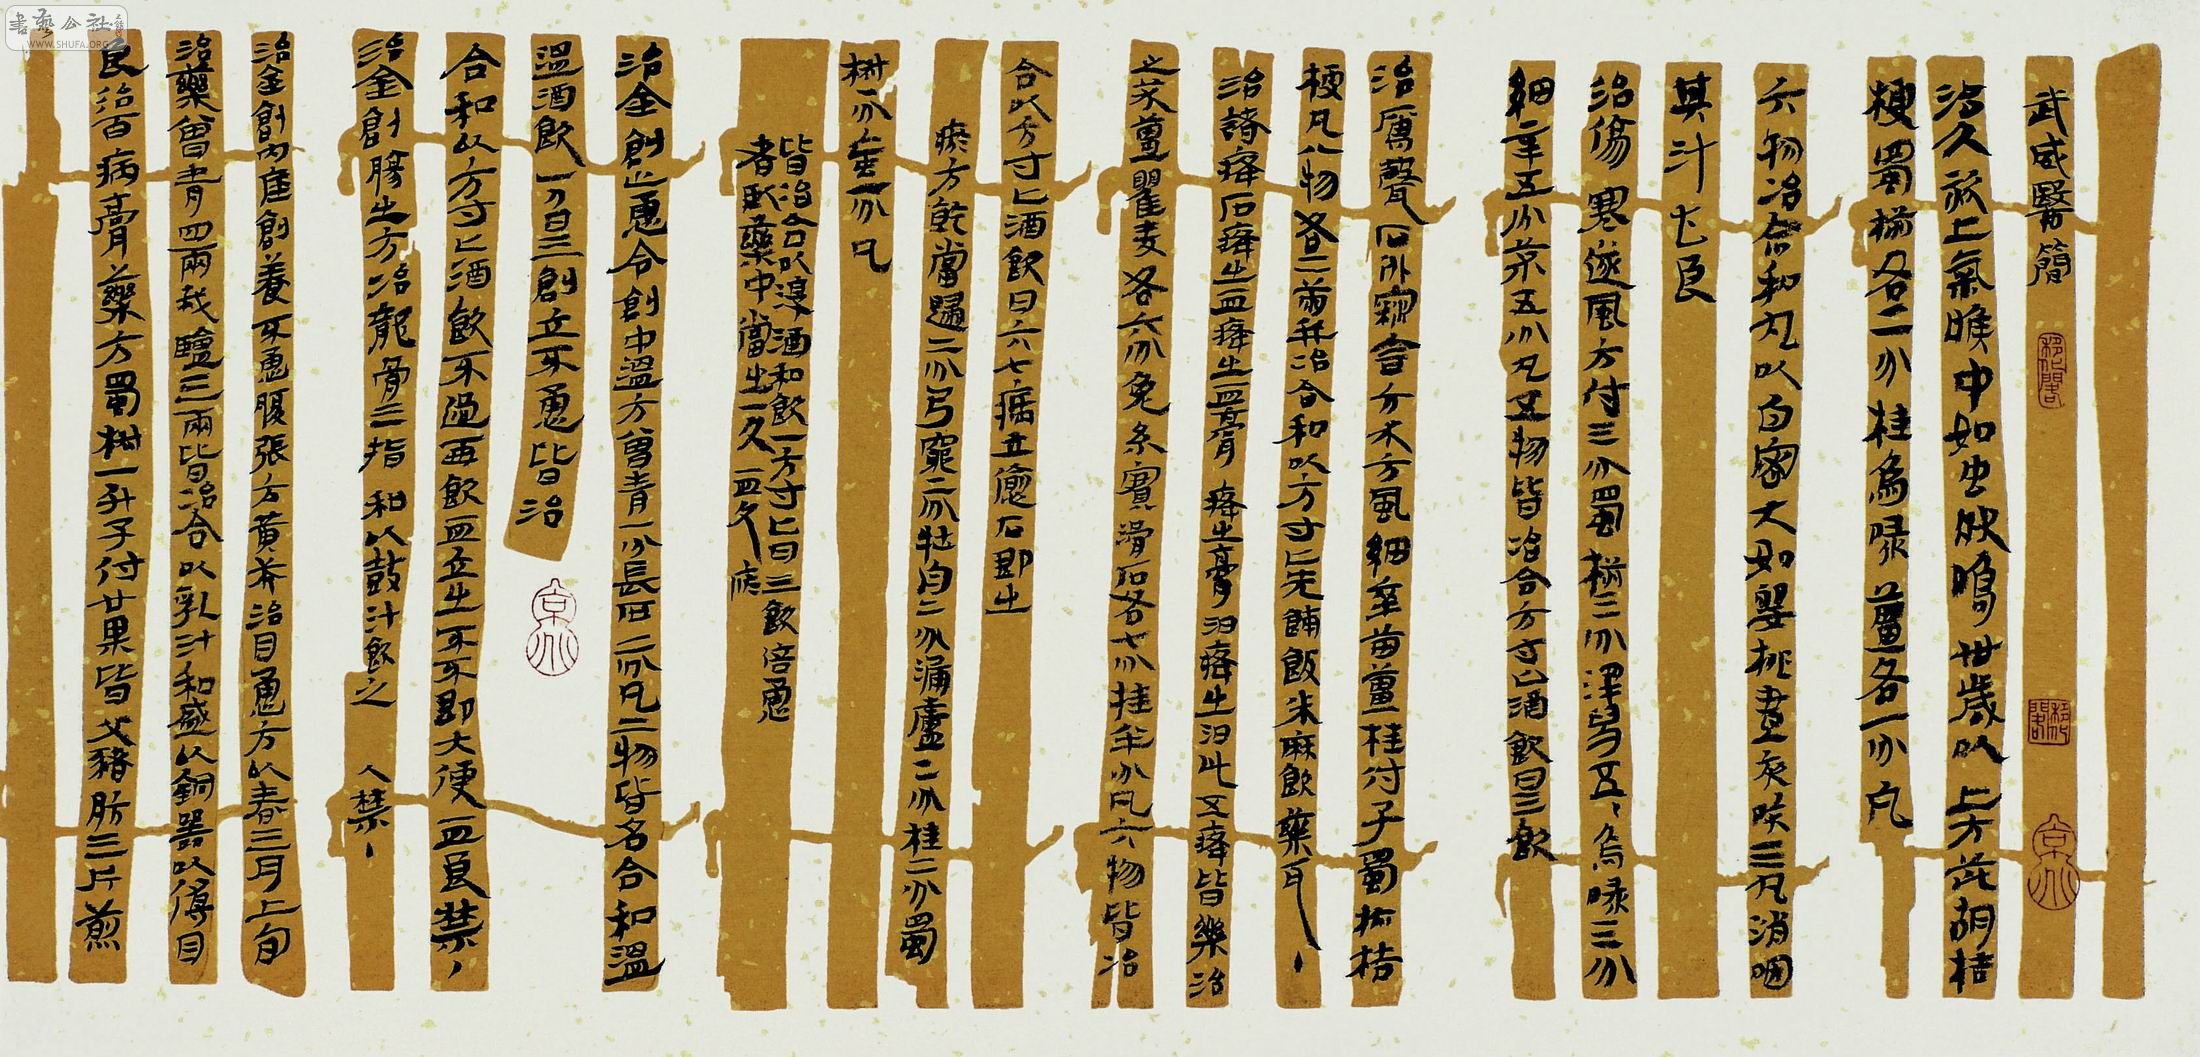 武威醫簡
治久欬上氣喉中如虫鳴狀鳴卅歲以上方茈胡桔
梗蜀椒各二分桂烏喙薑各一分凡
六物冶合和丸以白密大如嬰桃晝夜哈三凡消咽
其汁甚良
治傷寒遂風方付子三分蜀椒三分澤舄五分烏喙三分
細辛五分朮五分凡五物皆冶合方寸匕酒飲日三飲
治雁聲□□□□□□方風細辛薑桂付子蜀椒桔
梗凡八物各二兩并冶合和以方寸匕先餔飯米麻飲藥耳
治諸癃石癃出血癃出膏癃出泔此五癃皆同藥治
之朮薑瞿麥各六分兔糸實滑石各七分桂半分凡六物皆冶
合以方寸匕酒飲日六七病立愈石即出
瘀方乾當歸二分弓窮二分牡丹二分漏廬二分桂二分蜀
椒一分䖟一分凡
皆冶合以淳酒和飲一方寸匕日三飲倍恿
者臥藥中當出血久瘀
治金創止恿令創中溫方曾青一分長石二分凡二物皆冶合和溫
溫酒飲一刀日三創立不恿皆冶
合和以方寸匕酒飲不過再飲血立出不不即大便血良禁
治金創腸出方冶龍骨三指和以鼓汁飲之 禁
治金創內痤創養不恿腹張方黃芩治目恿方以春三月上旬
治藥曾青四兩戎鹽三兩皆冶合以乳汁和盛以銅器以傅目
良治百病膏藥方蜀椒一升付子廿果皆父豬肪三斤煎
書藝公社
WWW.SHUFA.ORG